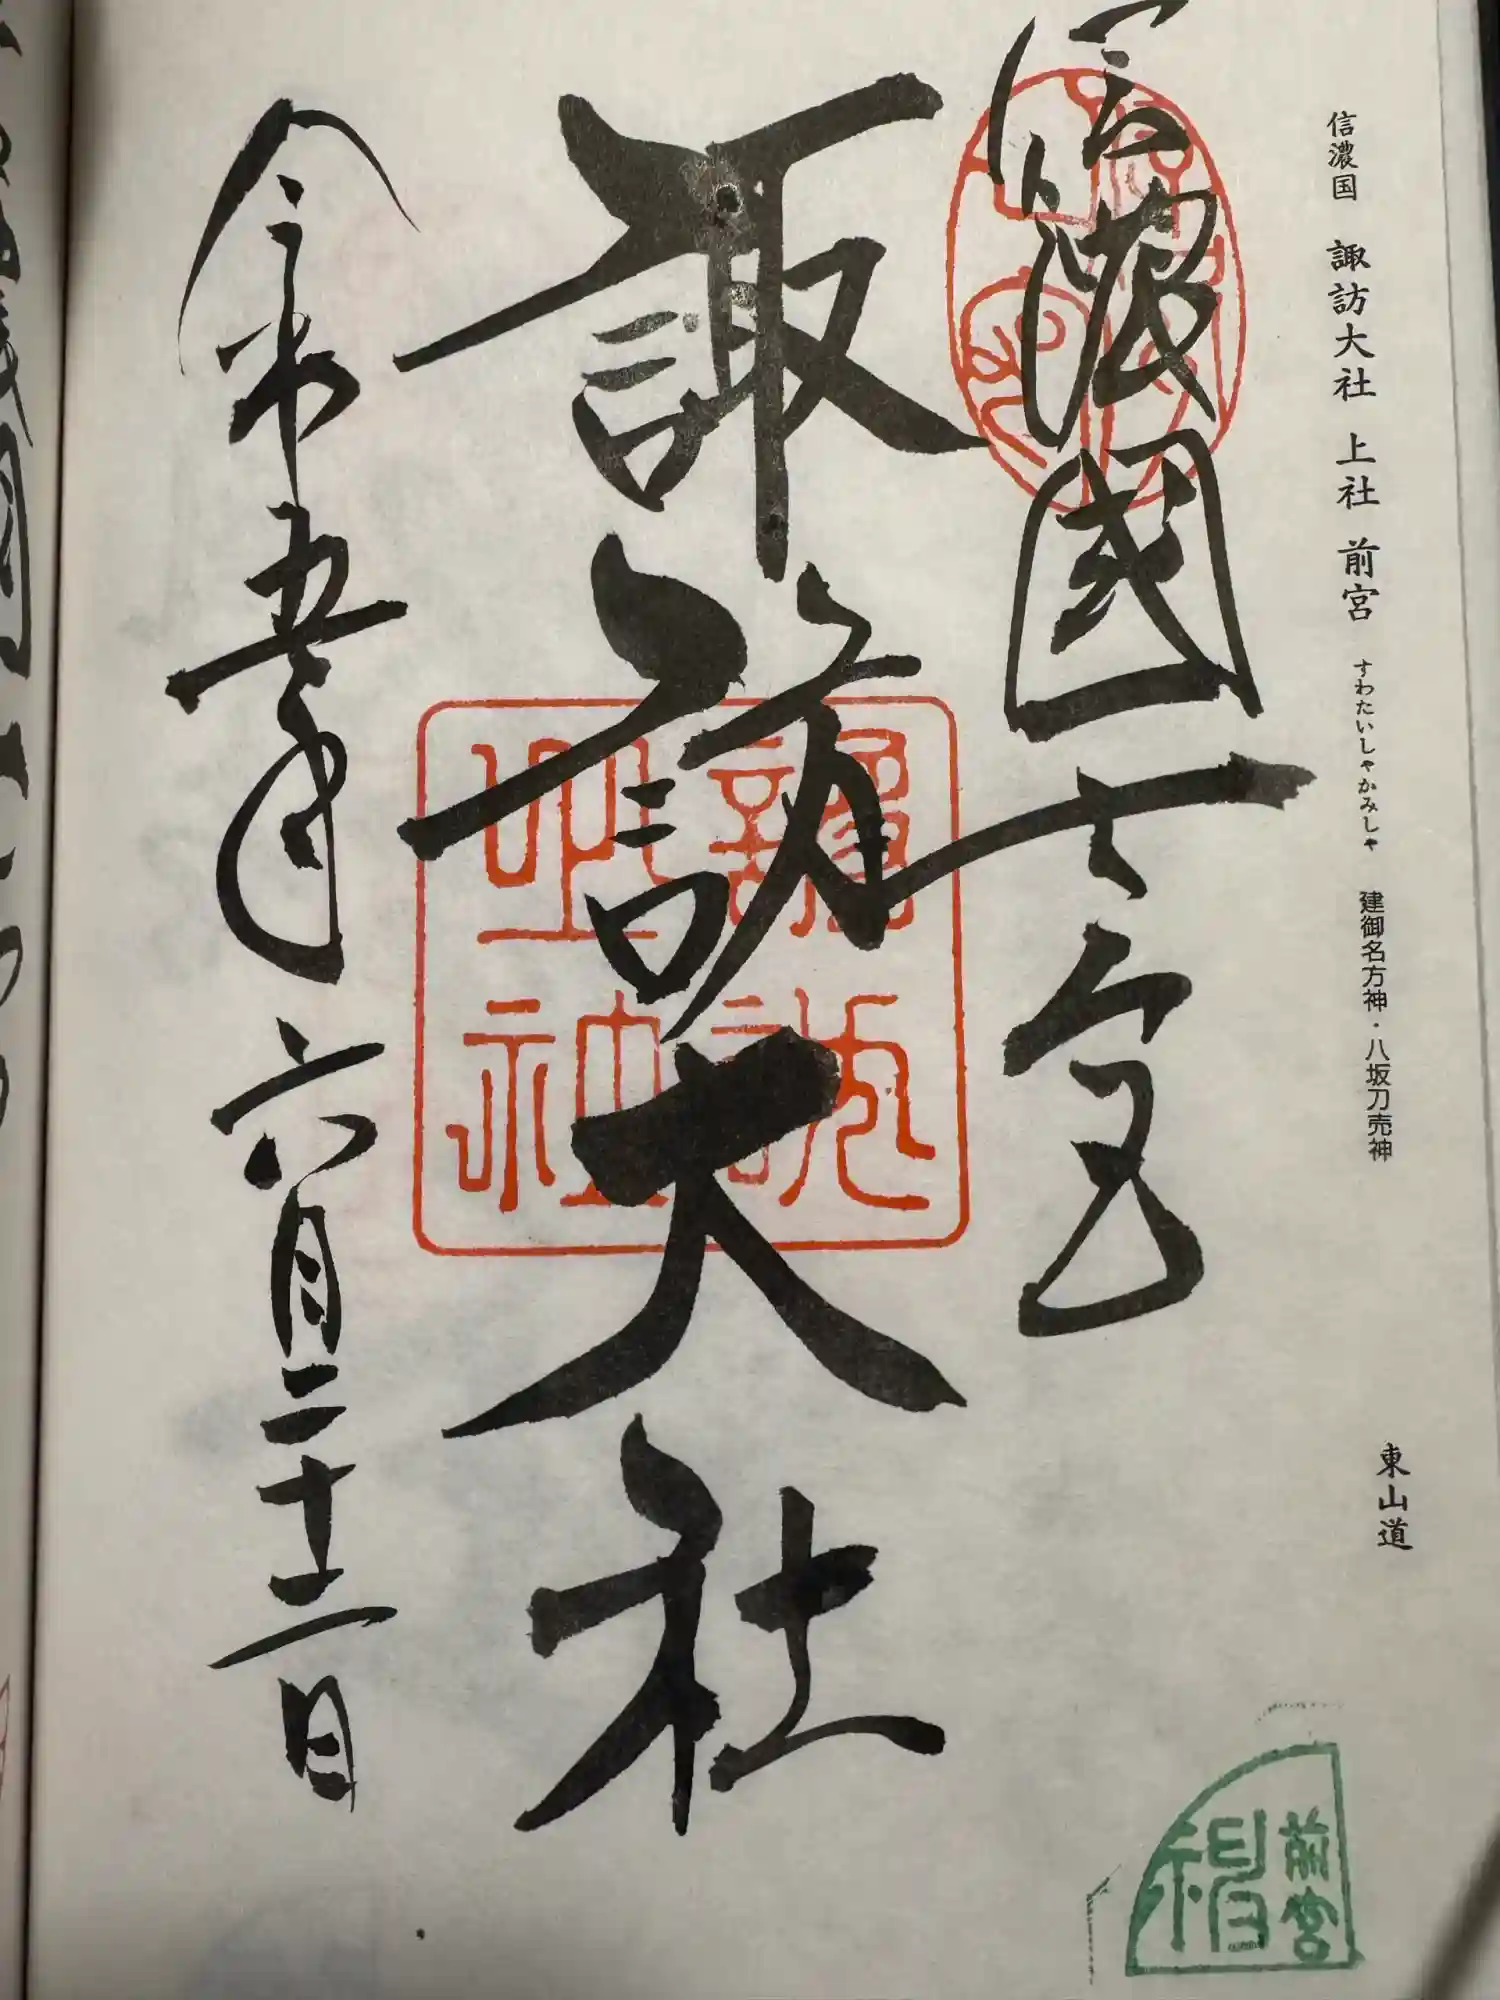 信濃国 諏訪大社 上社 前宮 すわたいしゃかみしゃ 建御名方神・八坂刀売神 東山道
信濃國一之宮
諏訪大社
令和五年六月二十一日
前宮